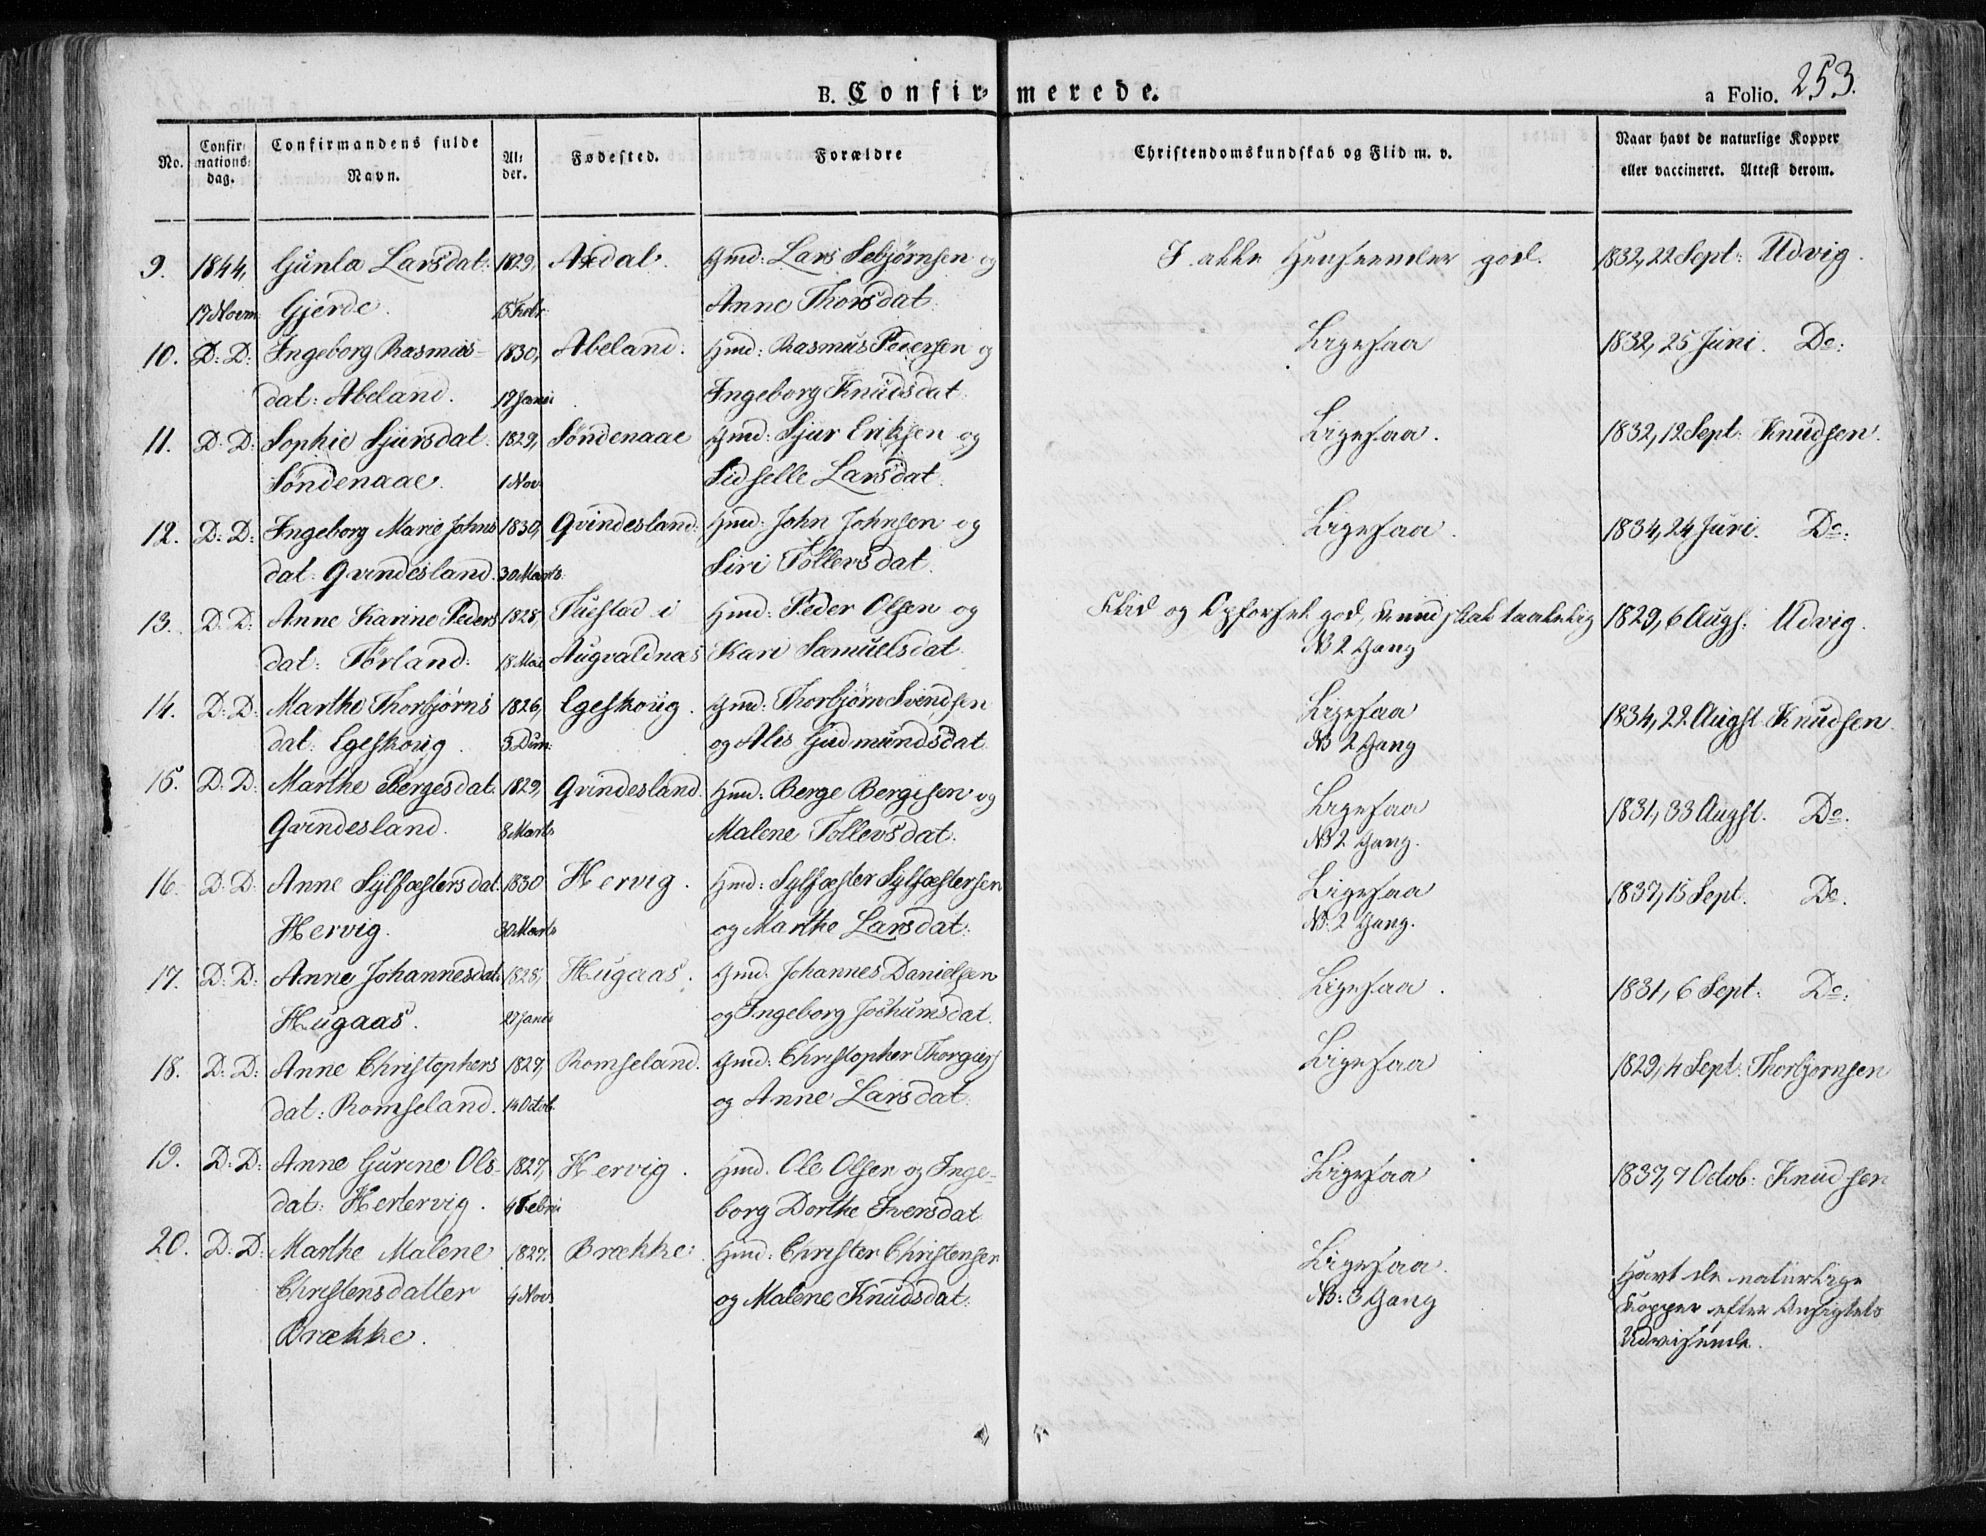 B. Confir- merede. a Folio. 253.
No. Confirmations-dag. Confirmandens fulde Navn. Alder. Fødested. Forældre Christendomskundskab og Flid m. v. Naar havt de naturlige Kopper eller vaccineret. Attest derom.
9. 1844, Gunla Larsdat: 1829, Axdal. Gmd: Lars Sebjørnsen og I alle Henseender god. 1832, 22 Sept: Udvig.
17 Novm: Gjerde. 15 Febr: Anne Thorsdat.
10. D: D: Ingeborg Rasmus- 1830, Abeland. Hmd: Rasmus Pedersen og Ligesaa 1832, 25 Juni. Do:
dat: Abeland. 19 Janu: Ingeborg Knudsdat.
11. D: D: Sophie Sjursdat. 1829, Søndenaae Gmd: Sjur Eriksen og Ligesaa. 1832, 12 Sept: Knudsen.
Søndenaae. 1 Nov: Sidselle Larsdat.
12. D: D: Ingeborg Marie Johns 1830, Qvindesland. Hmd: John Johnsen og Ligesaa. 1834, 24 Juni. Do:
dat: Qvindesland. 30 Marts Siri Tollevsdat.
13. D: D: Anne Karine Peders 1828, Tuestad i Hmd: Peder Olsen og Flid og Opførsel god, Kundskab taalelig 1829, 6 Augs: Udvig.
dat: Tørland: 18 Mai Augvaldnæs Kari Samuelsdat. NB 2 Gang
14. D: D: Marthe Thorbjørns 1826, Egeskoug. Gmd: Thorbjørn Svendsen Ligesaa 1834, 22 Augst Knudsen.
dat: Egeskoug. og Alis Gudmundsdat. NB 2 Gang
15. D: D: Marthe Bergesdat. 1829, Qvindesland. Hmd: Berge Bergesen og Ligesaa 1831, 33 Augst. Do.
Qvindesland. 8 Marts Malene Tollevsdat: NB 2 Gang.
16. D: D: Anne Sylfæstersdat. 1830 Hervig. Hmd: Sylfæster Sylfæstersen Ligesaa 1837, 15 Sept. Do.
Hervig. 30 Marts og Marthe Larsdat: NB. 2 Gang.
17. D: D: Anne Johannesdat: 1828, Hugaas. Gmd: Johannes Danielsen Ligesaa. 1831, 6 Sept: Do:
Hugaas. 27 Janu og Ingeborg Jochumsdat.
18. D: D: Anne Christophers 1827, Romseland. Gmd: Christopher Ligesaa 1829, 4 Sept: Thorbjørnsen
dat: Romseland. 14 Octob. og Anne Larsdat.
19. D: D: Anne Gurine Ols- 1827, Hervig. Hmd: Ole Olsen og Inge- Ligesaa 1837, 7 Octob: Knudsen
dat: Hertervig. 4 Febru borg Dorthe Iversdat.
20. D: D: Marthe Malene 1827. Brække. Hmd: Christen Christensen Ligesaa. Havt de naturlige
Christensdatter 4 Nov: og Malene Knudsdat. NB: 3 Gang Kopper efter Ansigtets
Brække. Udvisende.